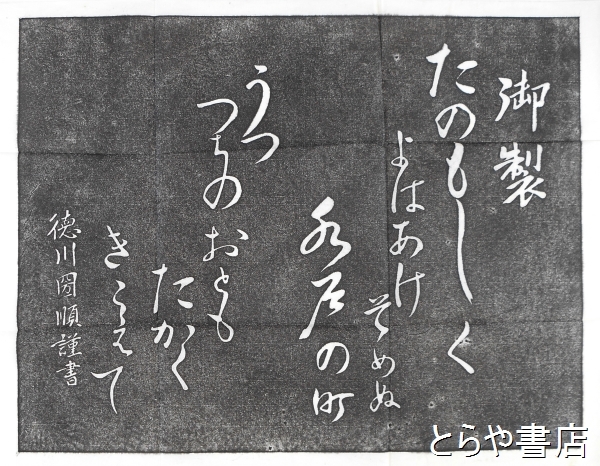 御製
たのもしく
よはあけ
そめぬ
水戸の町
うつ
つちの
おとも
たかく
きこえて
徳川圀順謹書
とらや書店